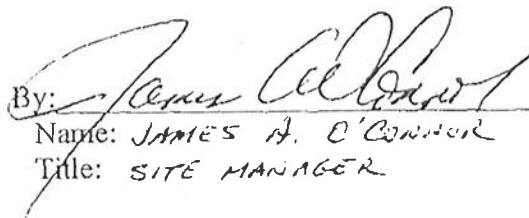 By: James A O'Connor
Name: JAMES A. O'CONNOR
Title: SITE MANAGER